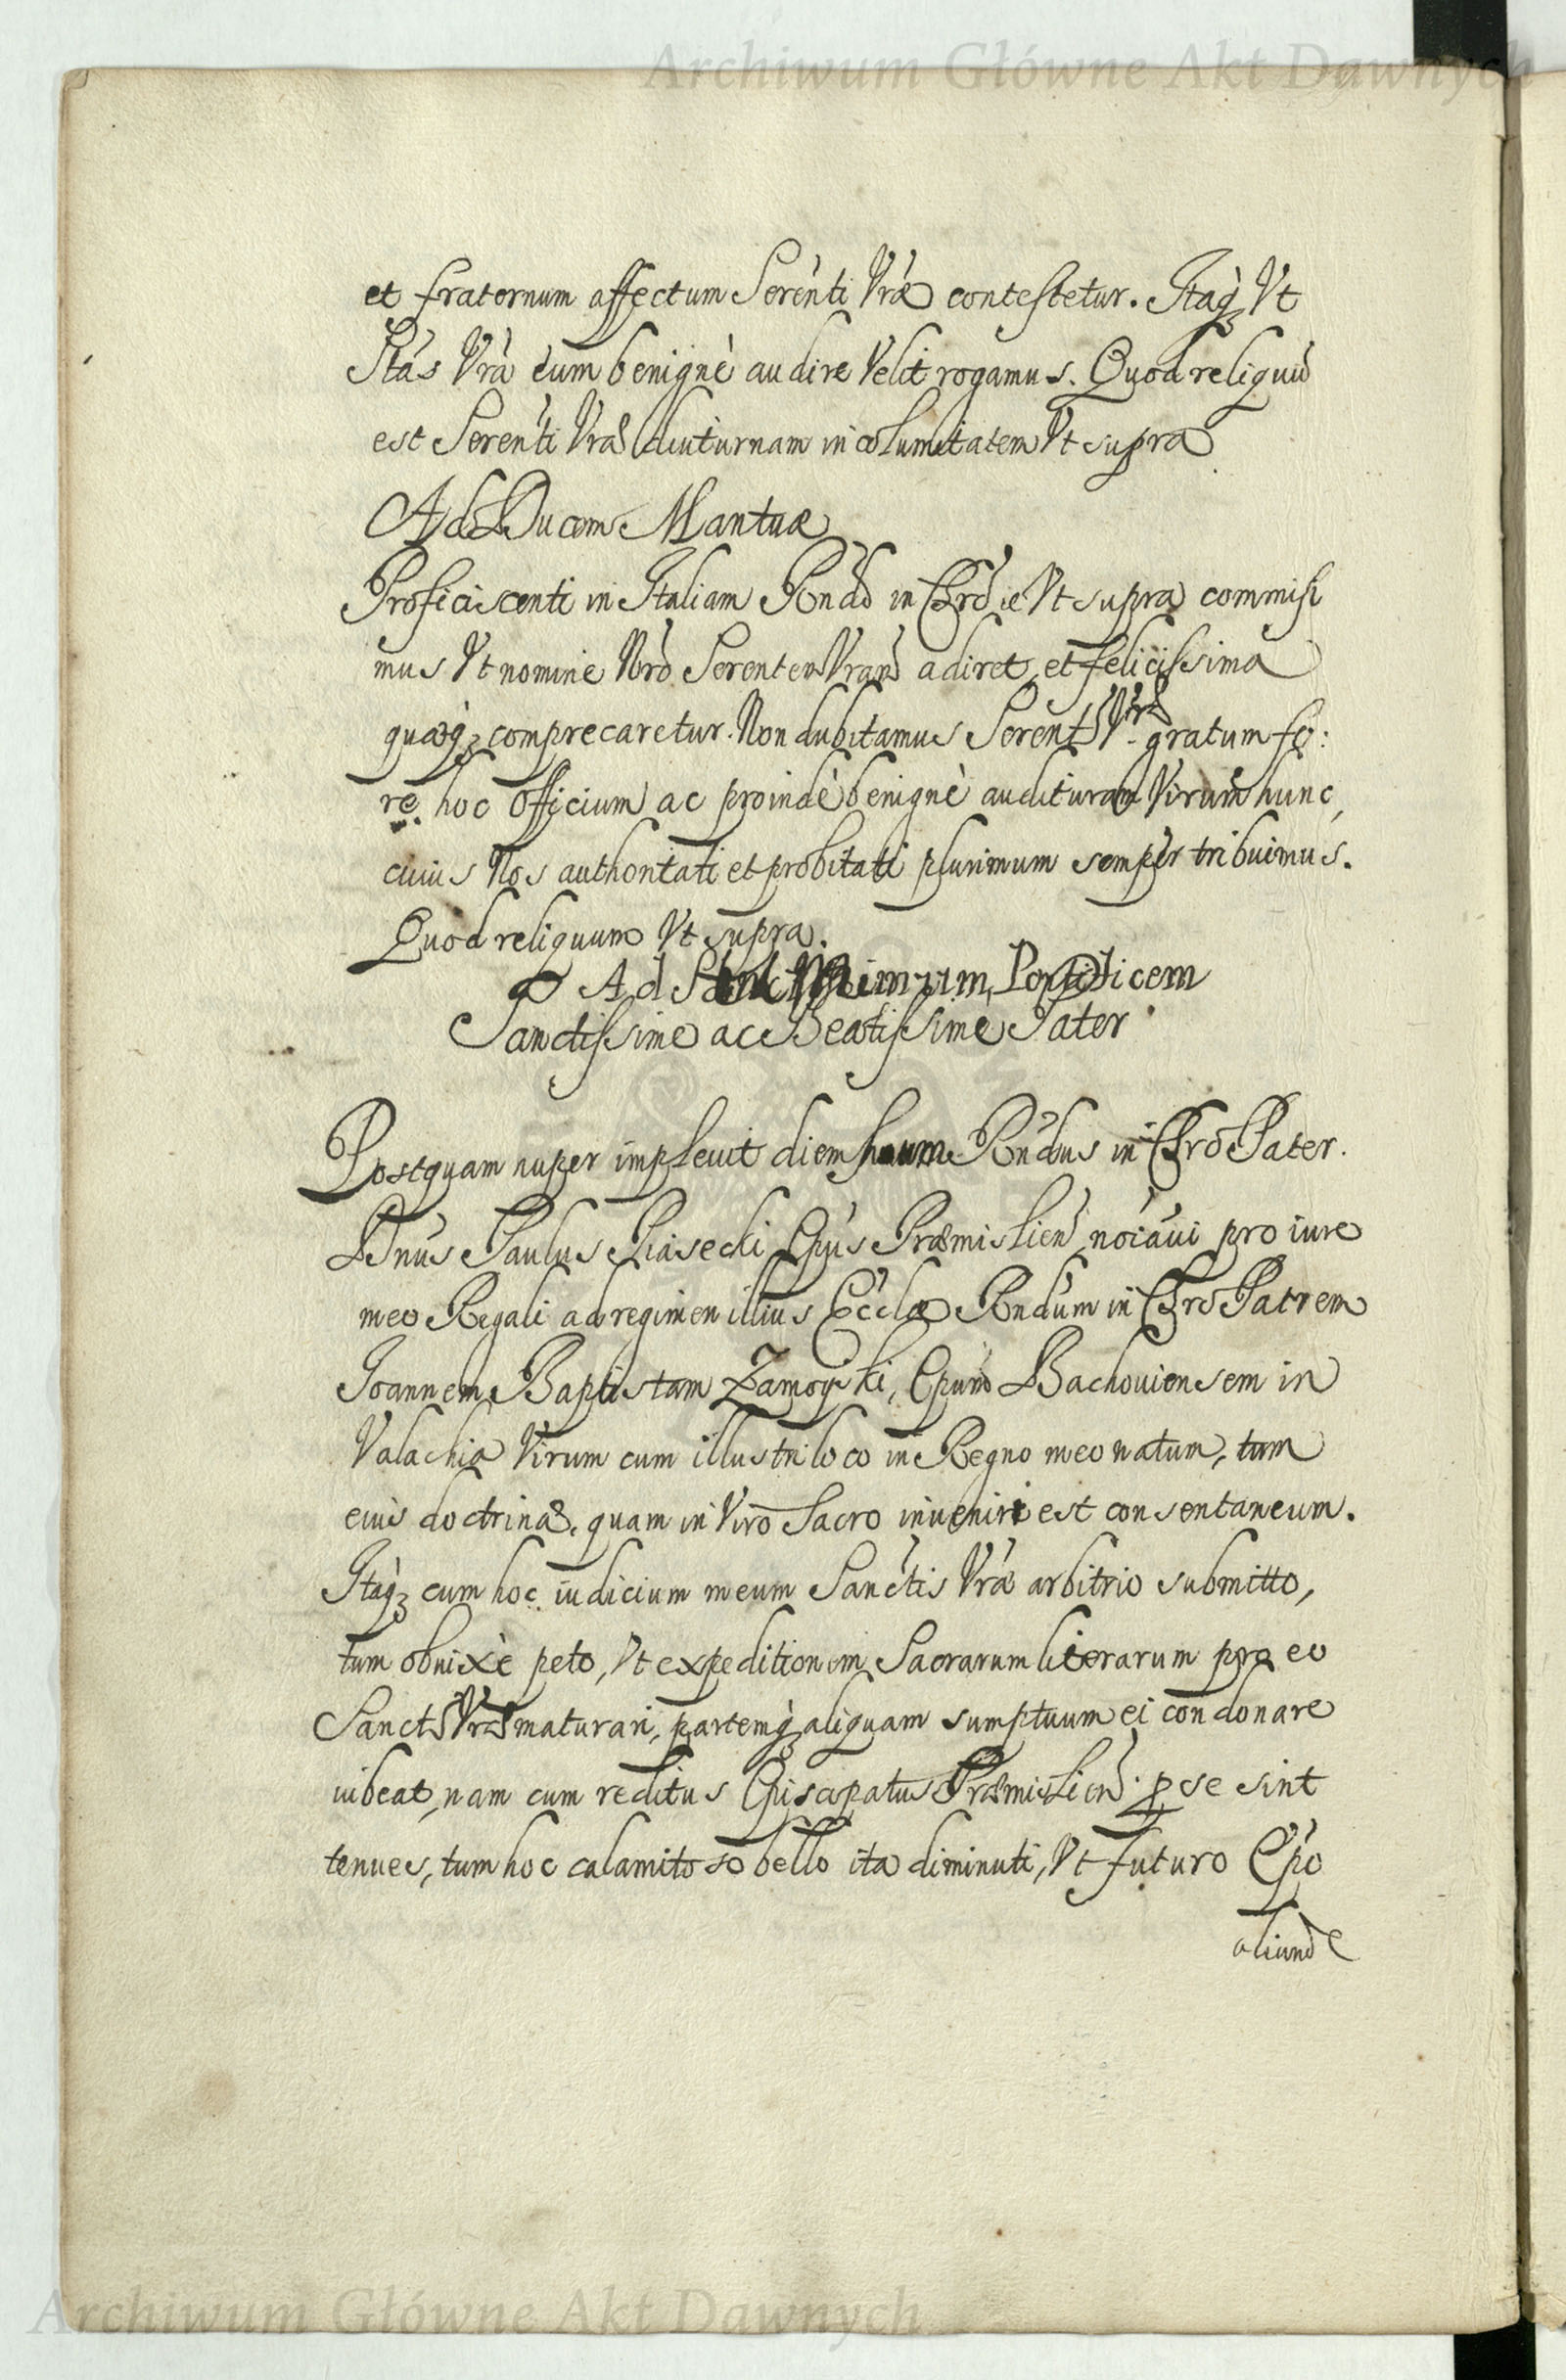 Archiwum Główne Akt Dawnych
et fraternum affectum Serenti Vræ contestetur. Itaq Vt
Stas Vra eum benignè audire Velit rogamus. Quod reliquū
est Serenti Vræ diuturnam incolumitatem Vt supra
Ad Ducem Mantuæ
Proficiscenti in Italiam Rndo in Chro ie Vt supra commisi
mus Vt nomine Nro Serentem Vram adiret et felicissima
quæq comprecaretur. Non dubitamus Serenti Vræ gratum fo:
re hoc officium ac proindè benignè audituram Virum hunc,
cuius Nos authoritati et probitati plurimum semper tribuimus.
Quod reliquum Vt supra.
Ad Pontificem
Sanctissime ac Beatissime Pater
Postquam nuper impleuit diem suum Rndus in Chro Pater.
Dnus Paulus Piasecki Epus Præmislien noiaui pro iure
meo Regali ad regimen illius Ecclæ Rndum in Chro Patrem
Joannem Baptistam Zamoyski, Epum Bachouiensem in
Valachia Virum cum illustri loco in Regno meo natum, tum
eius doctrinæ, quam in Viro Sacro inueniri est consentaneum.
Itaq cum hoc iudicium meum Sanctis Vræ arbitrio submitto,
tum obnixè peto, Vt expeditionem Sacrarum literarum pro eo
Sanctis Vra maturari, partemq aliquam sumptuum ei condonare
iubeat, nam cum reditus Episcopatus Præmislien per se sint
tenues, tum hoc calamitoso bello ita diminuti, Vt futuro Epo
aliunde
Archiwum Główne Akt Dawnych